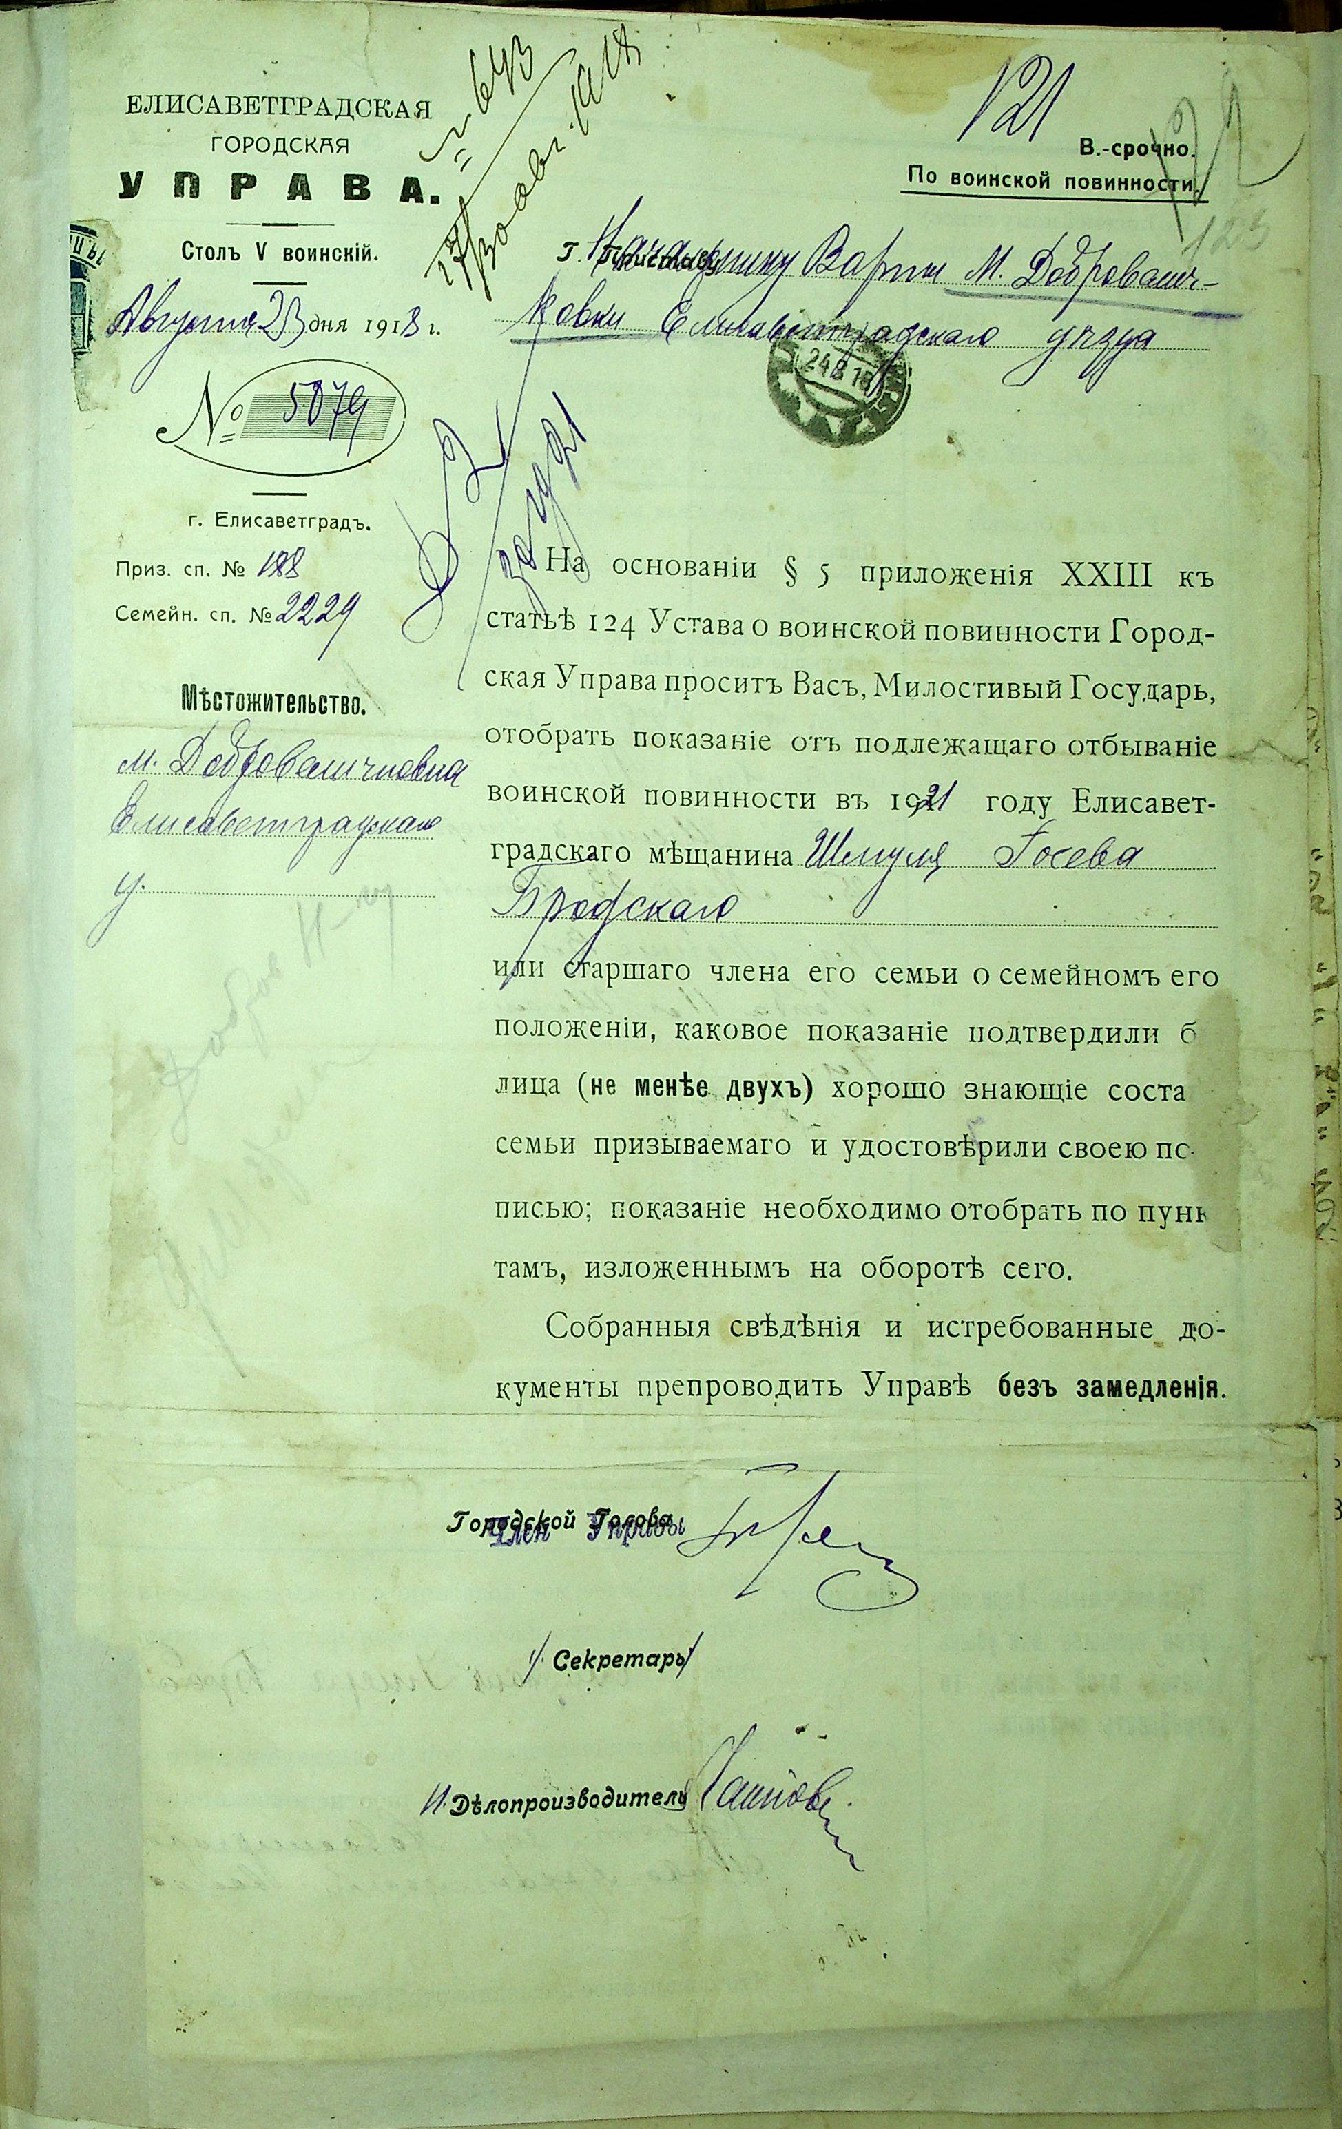 № 643
17/30 авг. 1918
121
122
123
ЕЛИСАВЕТГРАДСКАЯ
ГОРОДСКАЯ
УПРАВА.
Столъ V воинскій.
Августа 23 дня 1918 г.
№ 5079
г. Елисаветградъ.
Приз. сп. № 188
Семейн. сп. № 2229
Мѣстожительство.
м. Добровеличковка
Елисаветградскаго
у.
В.-срочно.
По воинской повинности.
Г. Приставу
Начальнику Варты м. Добровелич-
ковки Елисаветградскаго уѣзда
24 8 18
На основаніи § 5 приложенія XXIII къ
статьѣ 124 Устава о воинской повинности Город-
ская Управа проситъ Васъ, Милостивый Государь,
отобрать показаніе отъ подлежащаго отбыванію
воинской повинности въ 1921 году Елисавет-
градскаго мѣщанина Шмуля Госева
Бродскаго
или старшаго члена его семьи о семейномъ его
положеніи, каковое показаніе подтвердили б
лица (не менѣе двухъ) хорошо знающіе соста
семьи призываемаго и удостовѣрили своею по
писью; показаніе необходимо отобрать по пунк
тамъ, изложеннымъ на оборотѣ сего.
Собранныя свѣдѣнія и истребованные до-
кументы препроводить Управѣ безъ замедленія.
Городской Голова
Член Управы
Секретарь
И. Дѣлопроизводитель